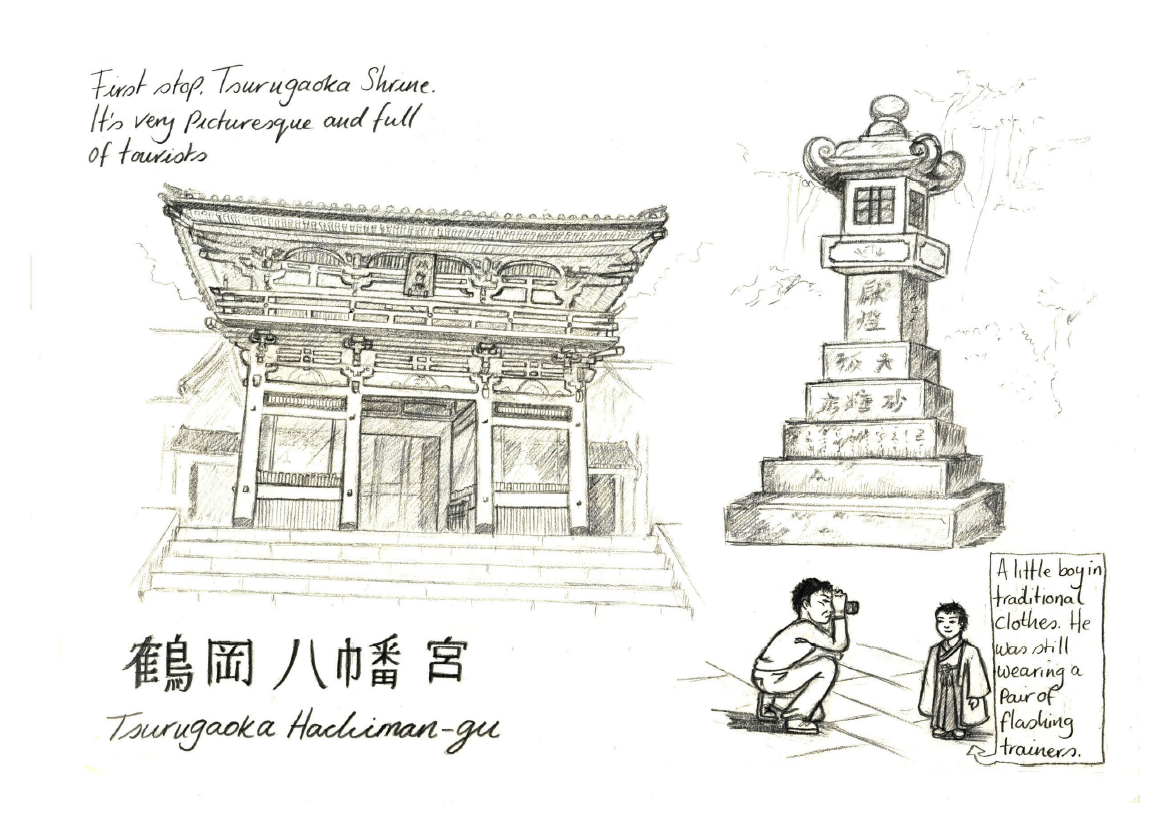 First stop, Tsurugaoka Shrine.
It's very picturesque and full
of tourists
鶴岡八幡宮
Tsurugaoka Hachiman-gu
燈
砂糖店
A little boy in
traditional
clothes. He
was still
wearing a
pair of
flashing
trainers.